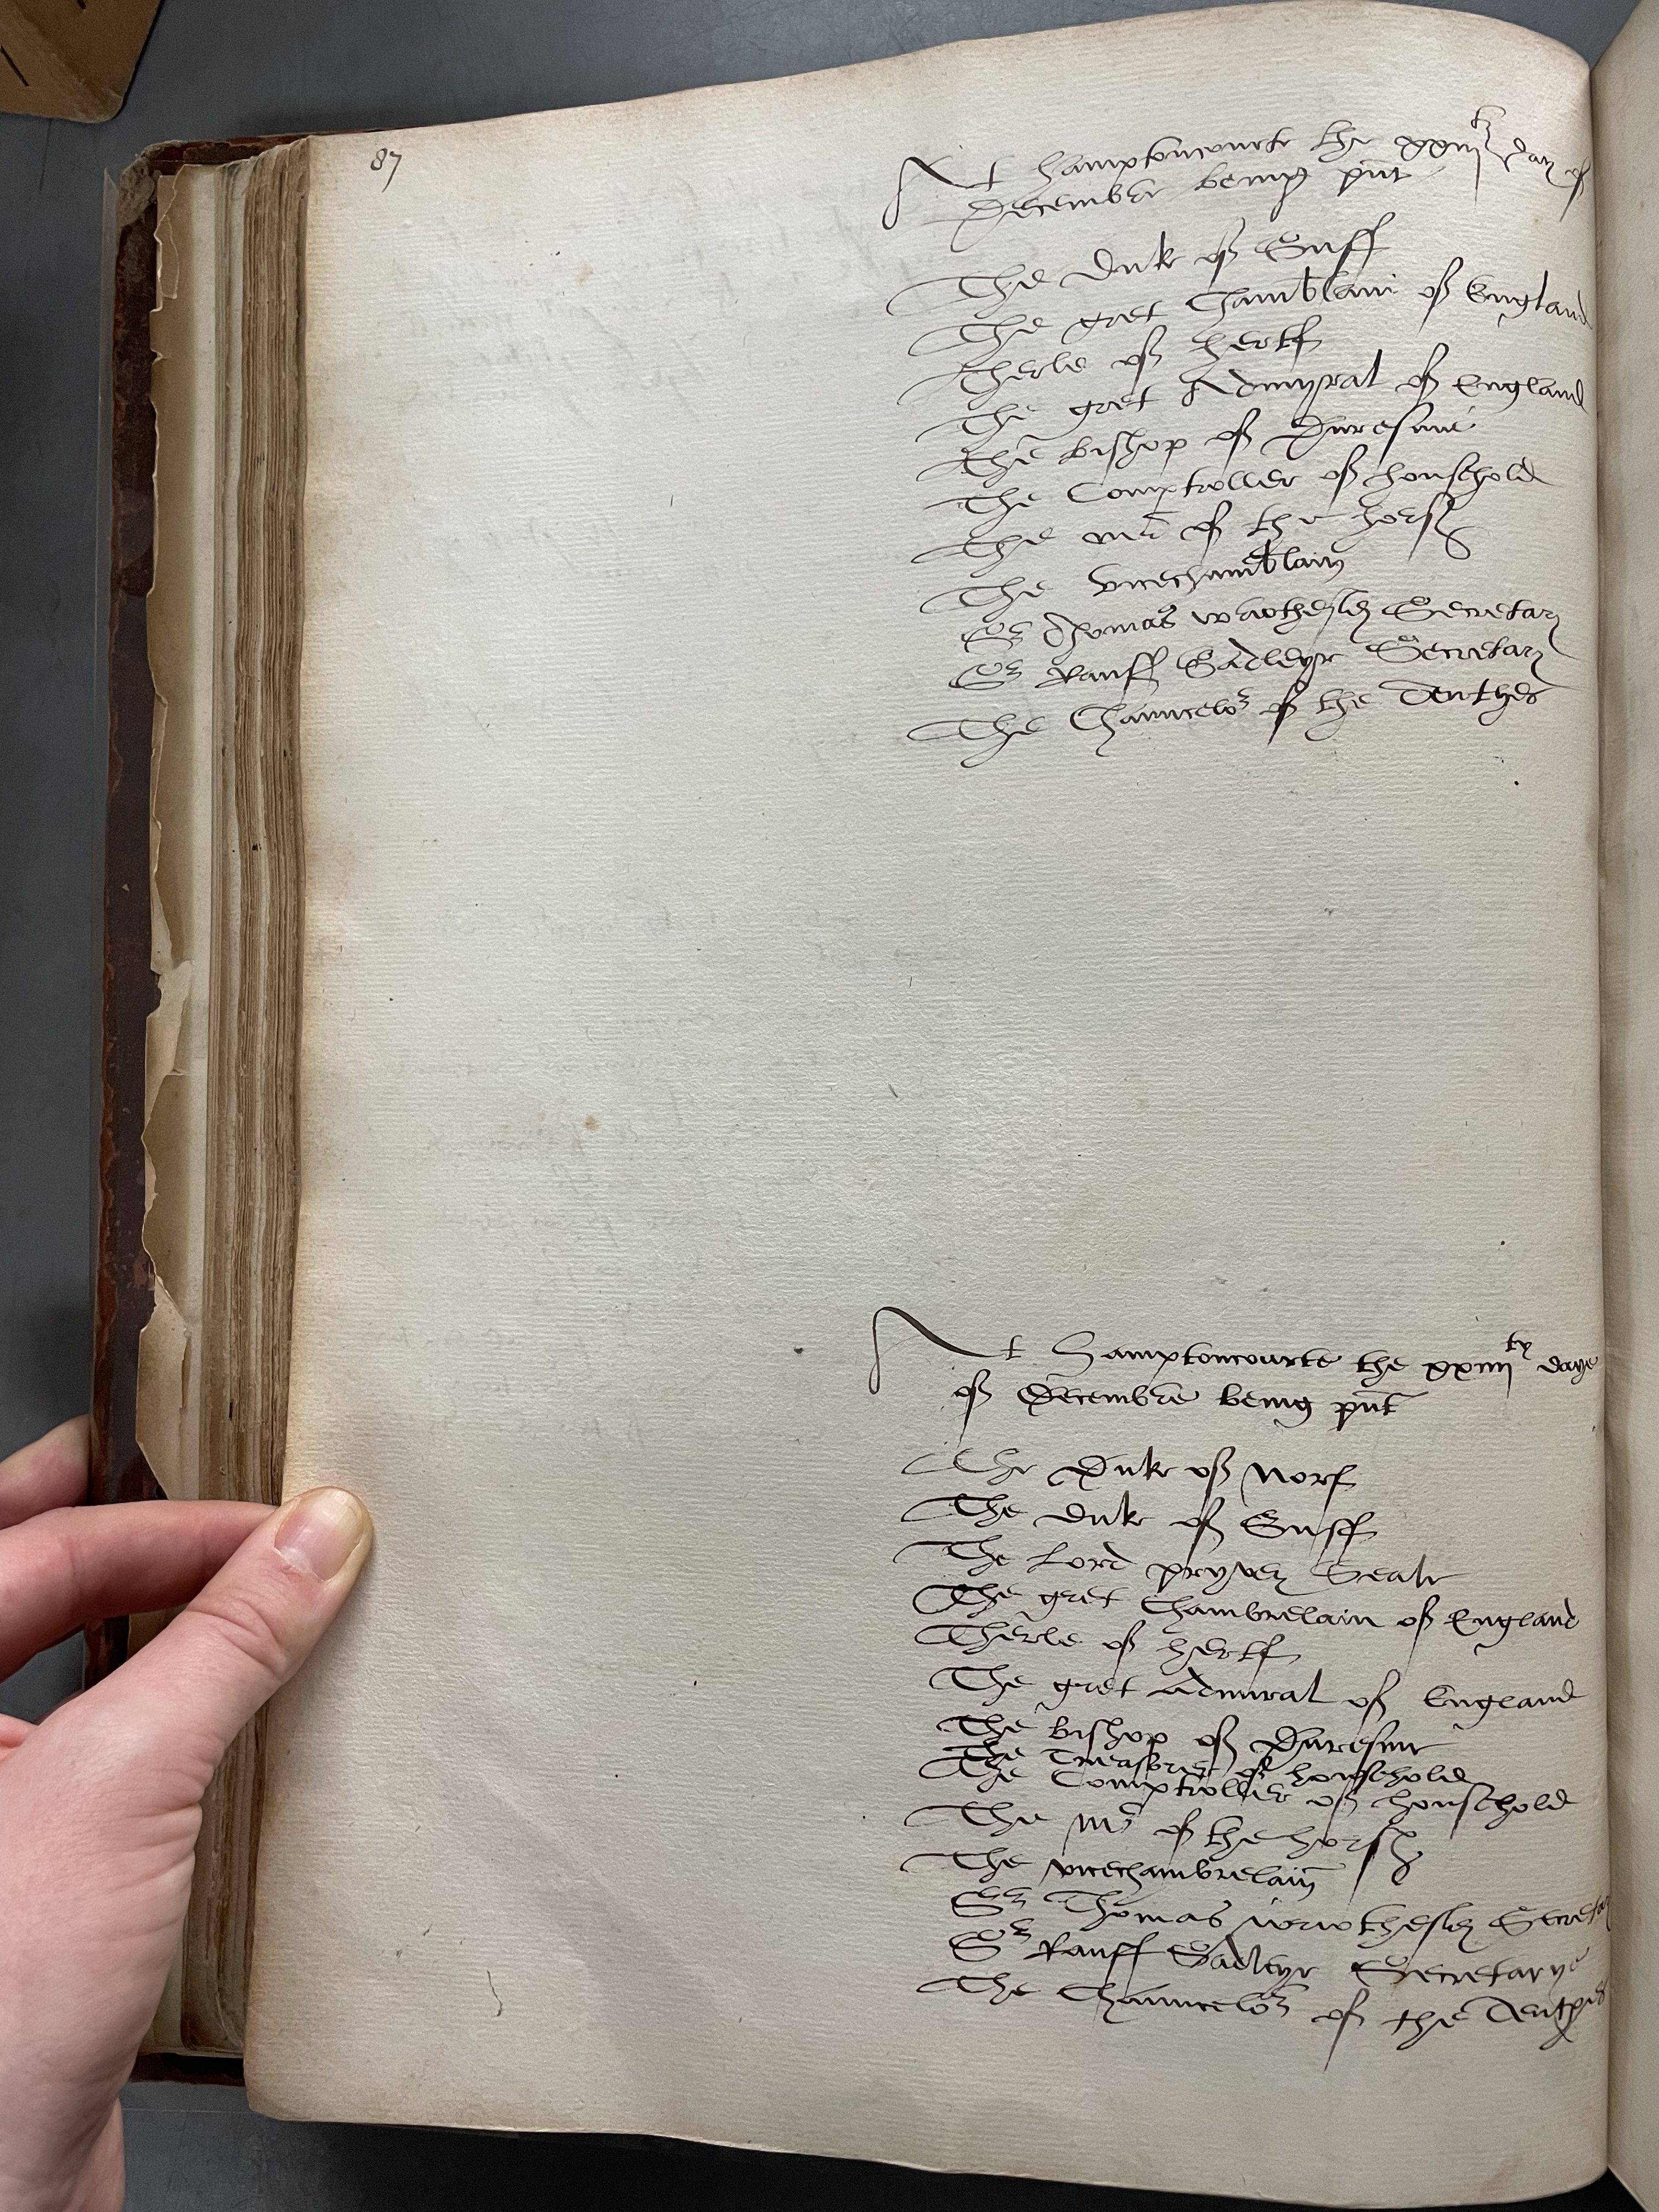 87
At Hamptoncourte the xxiijty day of
Decembre being pñt
The Duke of Suff
The gret Chamblain of England
Therle of Hertf
The gret Admyral of England
The bishop of Duresme
The Comptroller of household
The mr of the horse
The vicechamblain
Sr Thomas Wriothesley Secretary
Sr Rauff Sadleyr Secretary
The Chauncelor of the Tenthes
At Hamptoncourte the xxiiijty daye
of Decembre being pñt
The Duke of Norf
The Duke of Suff
The Lord pryvey Seale
The gret Chambrelain of England
Therle of Hertf
The gret Admiral of England
The bishop of Duresme
The Treasorer of household
The Comptroller of household
The Mr of the horse
The vicechambrelain
Sr Thomas Wriothesley Secretary
Sr Rauff Sadleyr Secretarye
The Chauncelor of the Tenthes